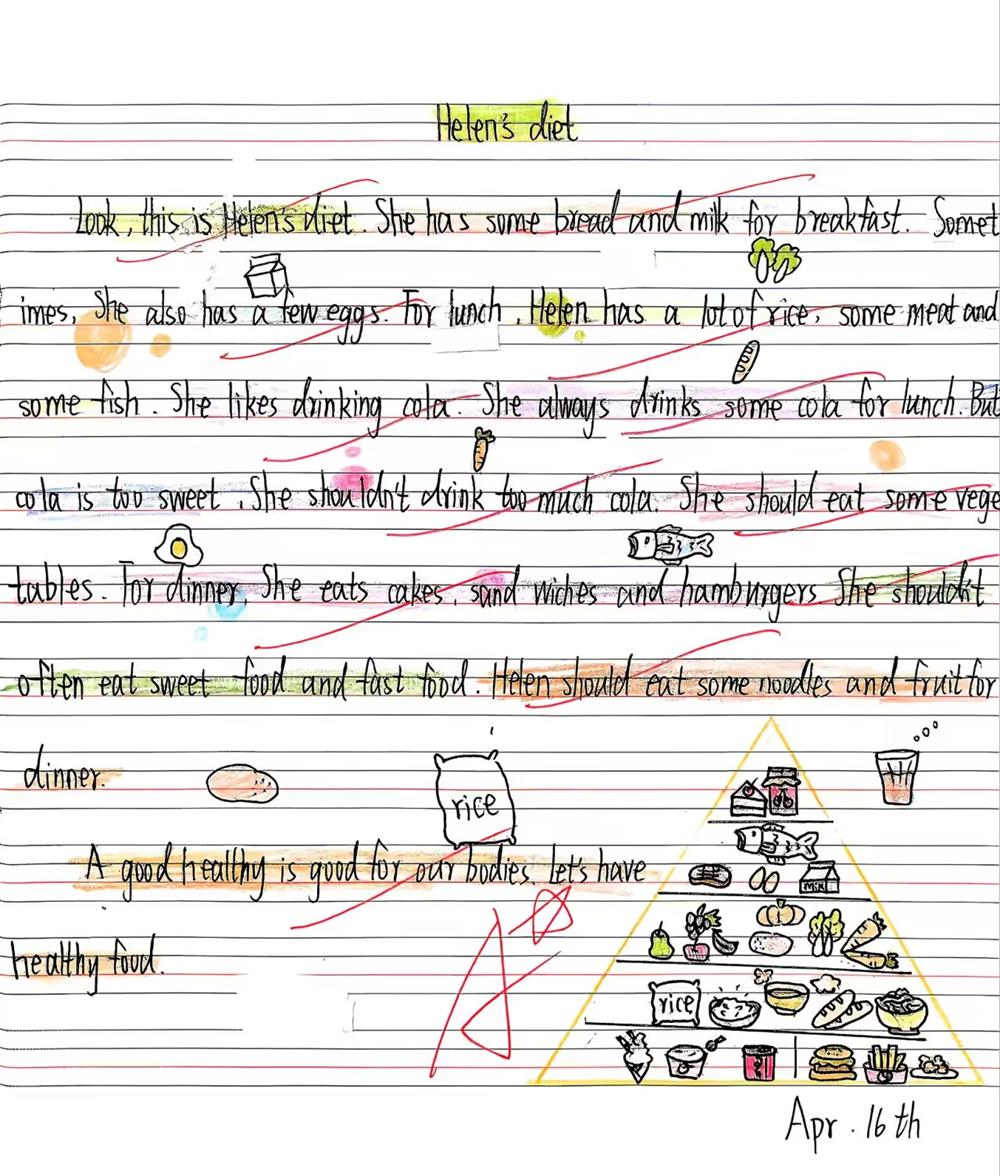 Helen's diet
Look, this is Helen's diet. She has some bread and milk for breakfast. Somet
imes, She also has a few eggs. For lunch, Helen has a lot of rice, some meat and
some fish. She likes drinking cola. She always drinks some cola for lunch. But
cola is too sweet. She shouldn't drink too much cola. She should eat some vege
tables. For dinner, She eats cakes, sand wiches and hamburgers. She shouldn't
often eat sweet food and fast food. Helen should eat some noodles and fruit for
dinner.
rice
A good healthy is good for our bodies. Let's have
healthy food.
A
milk
rice
Apr. 16th